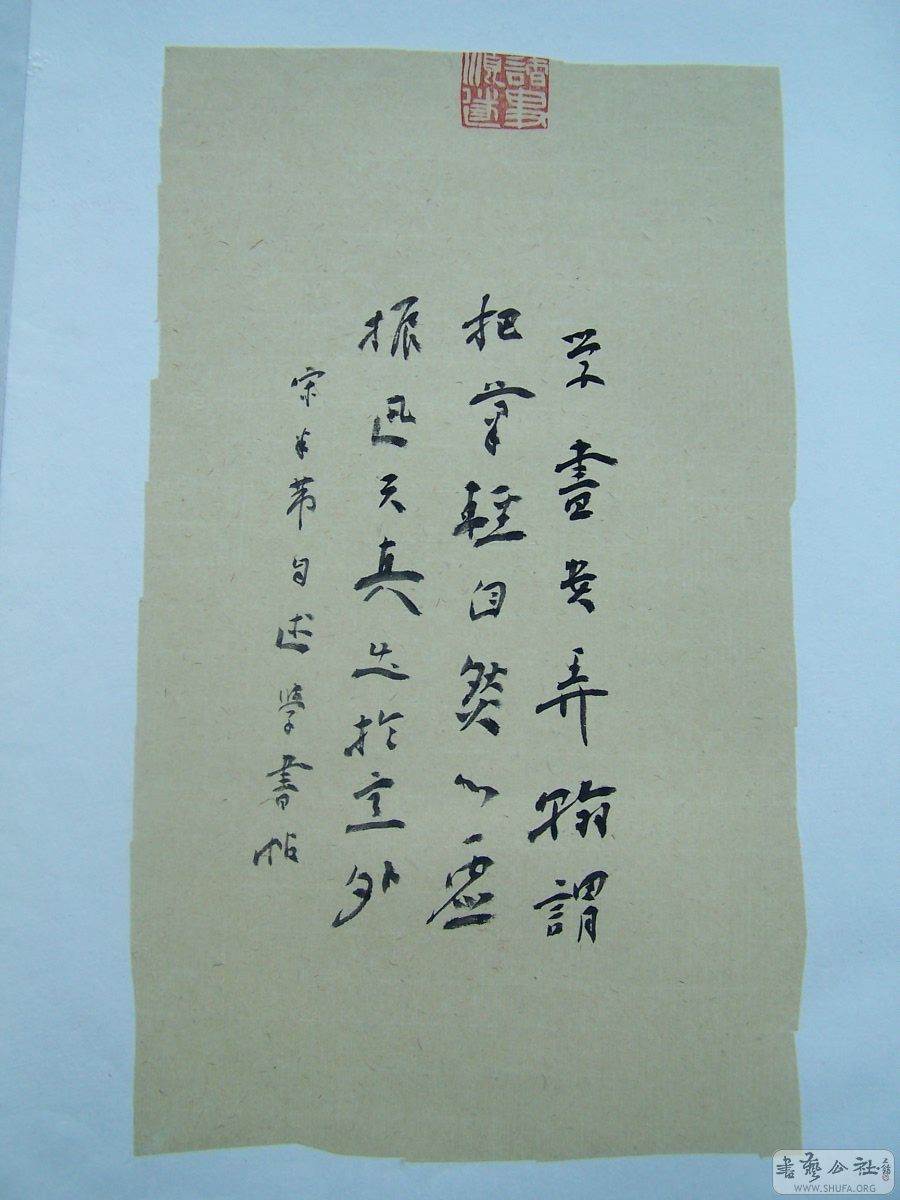 学書貴弄翰謂
把筆輕自然心虛
振迅天真出於意外
宋米芾自述學書帖
讀書
書藝公社
WWW.SHUFA.ORG